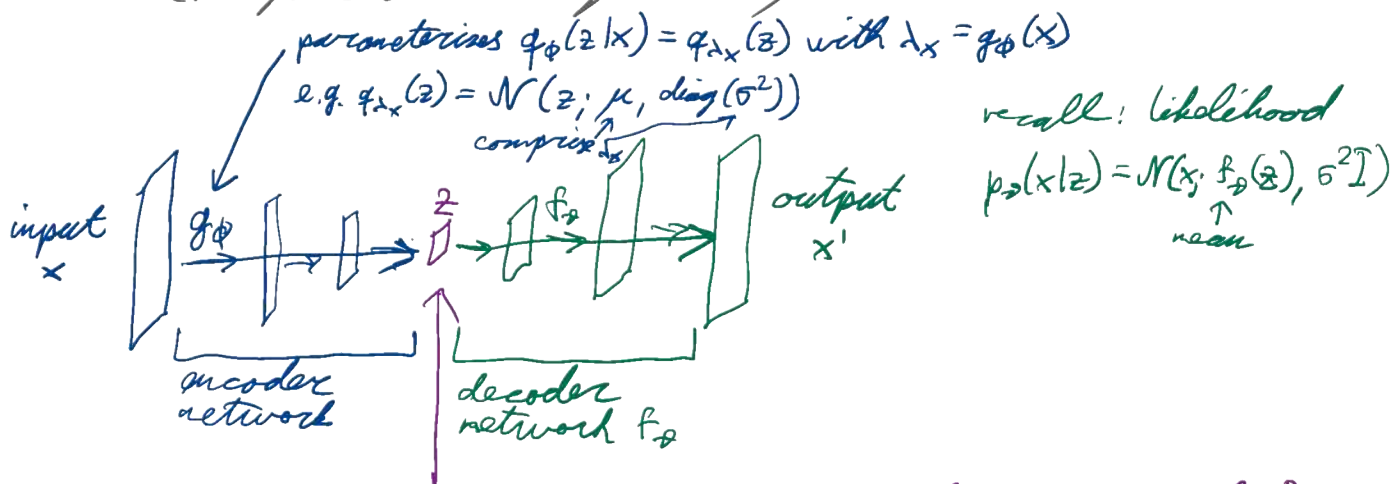 parameterises qφ(z|x) = qλₓ(z) with λₓ = gφ(x)
e.g. qλₓ(z) = N(z; μ, diag(σ²))
comprise λₓ
recall: likelihood
pθ(x|z) = N(x; fθ(z), σ²I)
mean
input
x
gφ
z
fθ
output
x'
encoder
network
decoder
network fθ